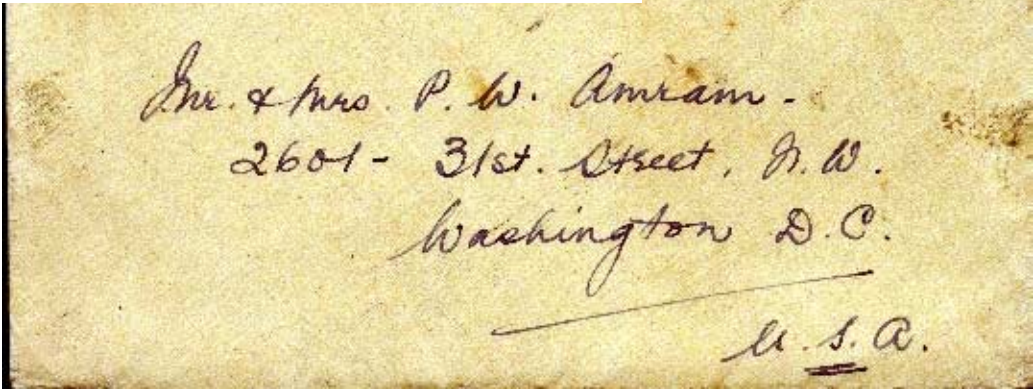 Mr. & Mrs. P. W. Amram.
2601 - 31st. Street, N. W.
Washington D. C.
U. S. A.